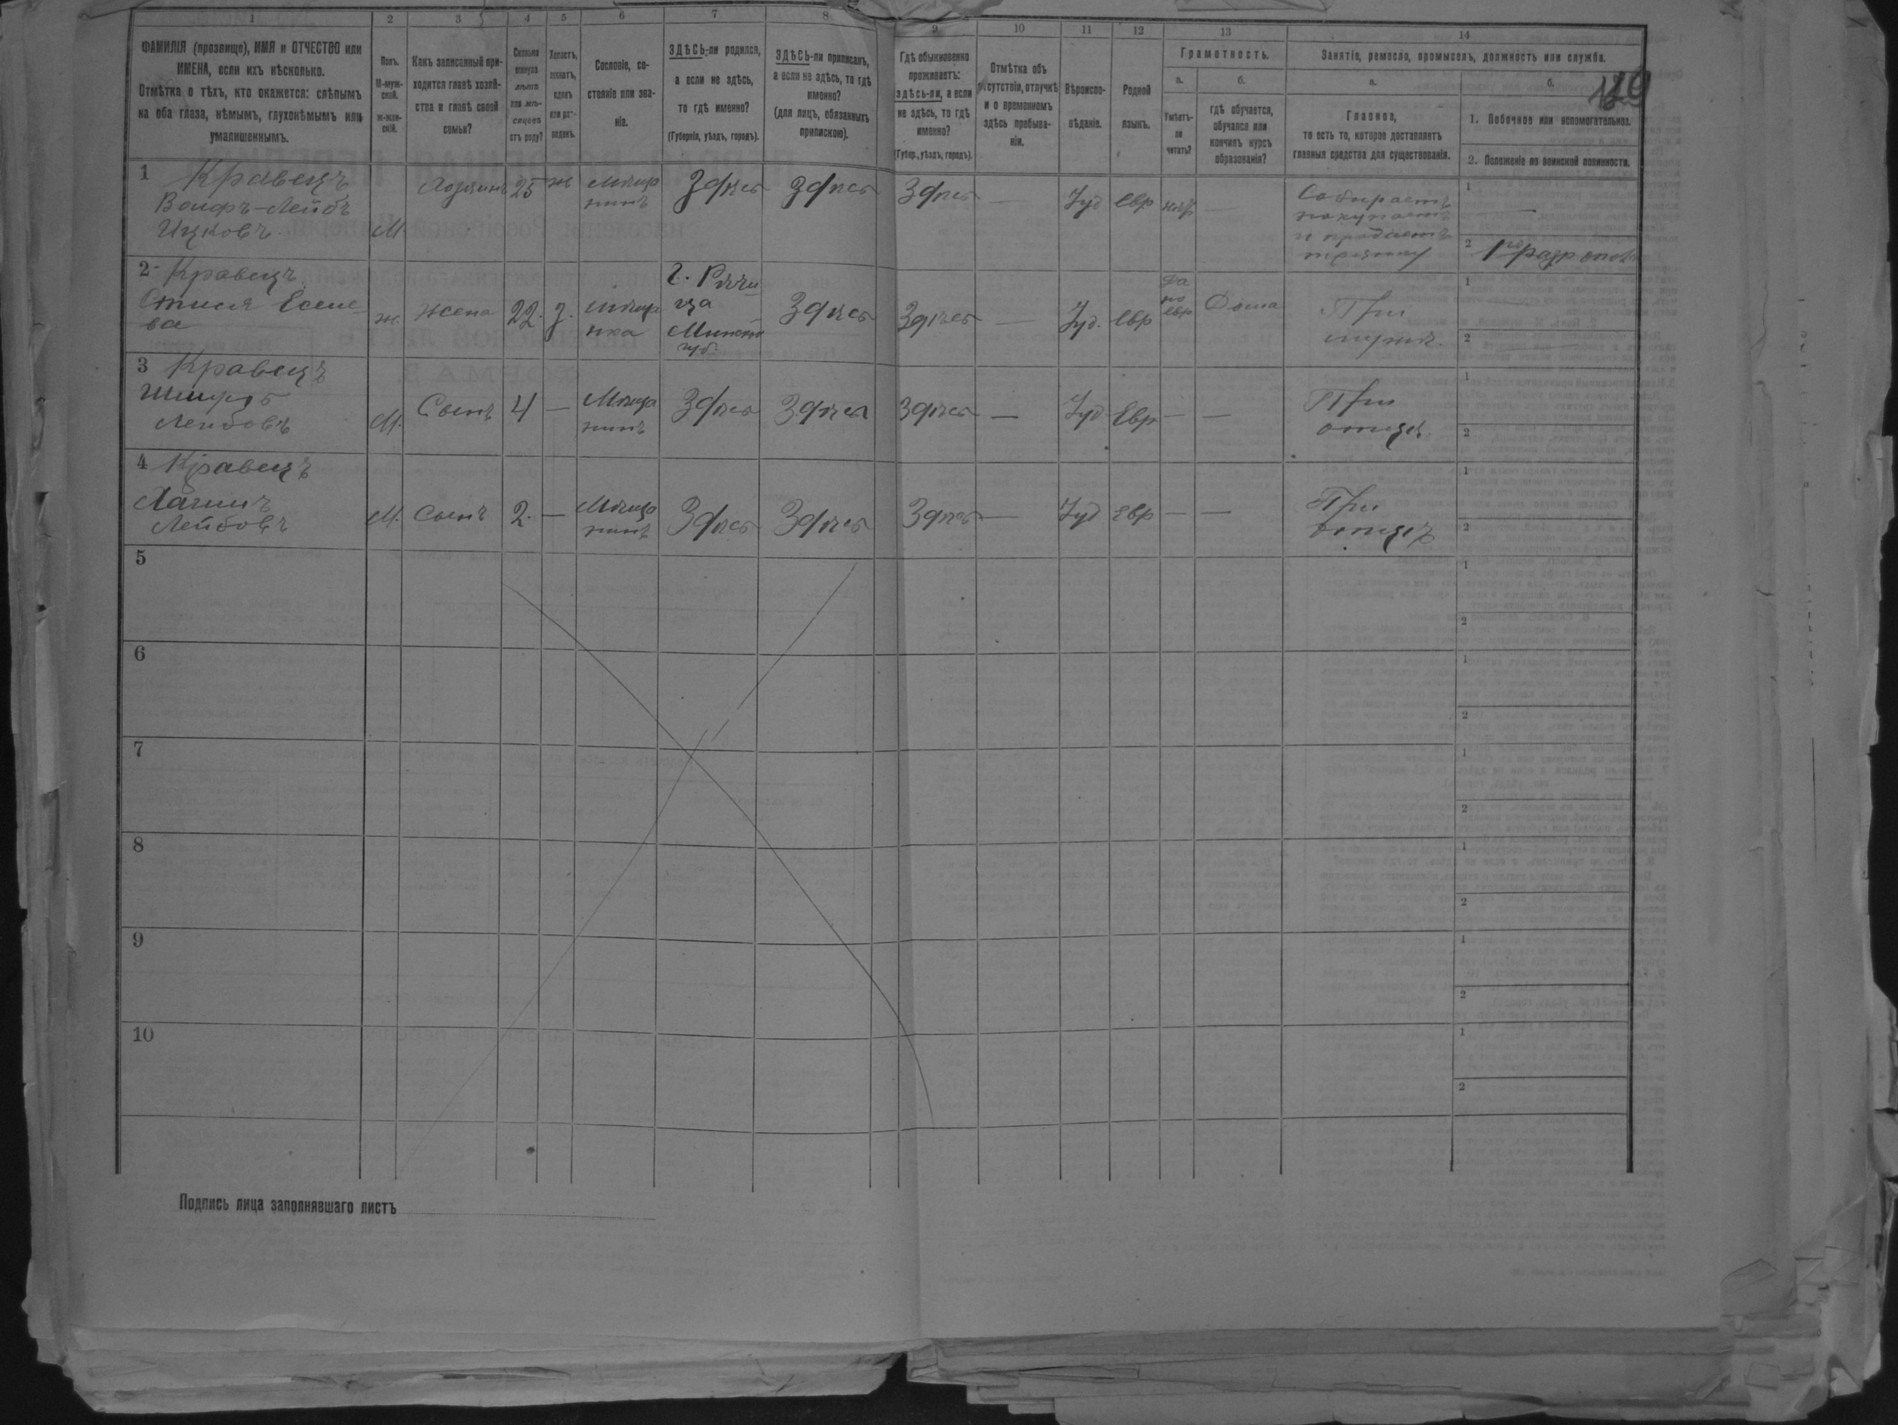 1 2 3 4 5 6 7 8 9 10 11 12 13 14
ФАМИЛІЯ (прозвище), ИМЯ и ОТЧЕСТВО или
ИМЕНА, если ихъ нѣсколько.
Отмѣтка о тѣхъ, кто окажется: слѣпымъ
на оба глаза, нѣмымъ, глухонѣмымъ или
умалишеннымъ.
Полъ.
М-муж-
ской.
Ж-жен-
скій.
Какъ записанный при-
ходится главѣ хозяй-
ства и главѣ своей
семьи?
Сколько
минуло
лѣтъ
или мѣ-
сяцевъ
отъ роду?
Холостъ,
женатъ,
вдовъ
или раз-
веденъ.
Сословіе, со-
стояніе или зва-
ніе.
ЗДѢСЬ-ли родился,
а если не здѣсь,
то гдѣ именно?
(Губернія, уѣздъ, городъ).
ЗДѢСЬ-ли приписанъ,
а если не здѣсь, то гдѣ
именно?
(для лицъ, обязанныхъ
припискою).
Гдѣ обыкновенно
проживаетъ:
здѣсь-ли, а если
не здѣсь, то гдѣ
именно?
(Губер., уѣздъ, городъ).
Отмѣтка объ
отсутствіи, отлучкѣ
и о временномъ
здѣсь пребыва-
ніи.
Вѣроиспо-
вѣданіе.
Родной
языкъ.
Грамотность.
а. б.
Умѣетъ-
ли
читать?
гдѣ обучается,
обучался или
кончилъ курсъ
образованія?
Занятіе, ремесло, промыселъ, должность или служба.
а. б.
Главное,
то есть то, которое доставляетъ
главныя средства для существованія.
1. Побочное или вспомогательное.
2. Положеніе по воинской повинности.
179
1 Кравецъ
Вольфъ-Лейбъ
Ицковъ
М
Хозяинъ 25 ж
мѣща
нинъ
Здѣсь Здѣсь Здѣсь — Іуд Евр —
Собираетъ
покупаетъ
и продаетъ
тряпку
1 —
2
2 Кравецъ
ж жена 22.
мѣща
нка
г. Рѣчи
ца
Минской
губ.
Здѣсь Здѣсь — Іуд. Евр
Да
по
евр
Дома
При
мужѣ.
1
2
3 Кравецъ
Лейбовъ
М. Сынъ 4 —
Мѣща
нинъ
Здѣсь Здѣсь Здѣсь — Іуд Евр — —
При
отцѣ.
1
2
4 Кравецъ
Лейбовъ
М. сынъ 2. —
Мѣща
нинъ
Здѣсь Здѣсь Здѣсь — Іуд Евр — —
При
отцѣ
1
2
5
1
2
6
1
2
7
1
2
8
1
2
9
1
2
10
1
2
Подпись лица заполнявшаго листъ